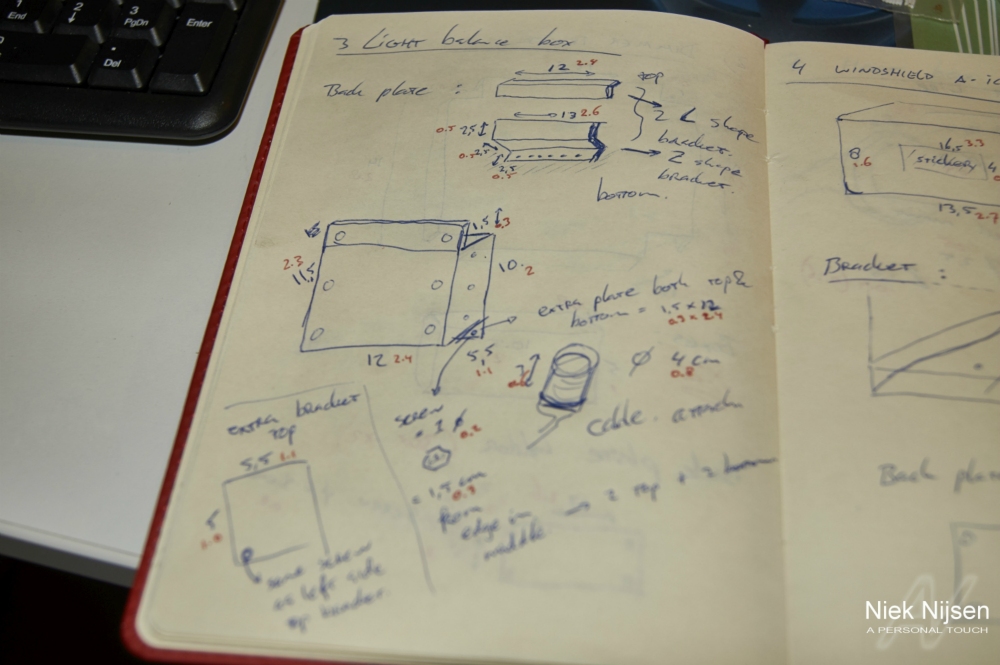 1
End
2
↓
3
PgDn
Enter
Del
3 LIGHT balance box
Back plate :
12 2.4
top
2 L shape
bracket.
13 2.6
0.5 2,5
2,5
2,5
0.5
2 shape
bracket.
bottom.
1,5 0.3
2.3
11,5
10. 2
12 2.4
5,5
1.1
extra plate both top &
bottom = 1,5 x 12
0.3 x 2.4
Ø 4 cm
0.8
cable. attach
extra bracket
top
5,5 1.1
5
1.0
screw
= 1 Ø
0.2
= 1,5 cm
0.3
from
edge in
middle
→ 2 top + 2 bottom
same screw
as left side
4 WINDSHIELD A-ic
8
.6
16,5 3.3
stickers
4
13,5 2.7
Bracket :
Back plan
Niek Nijsen
A PERSONAL TOUCH